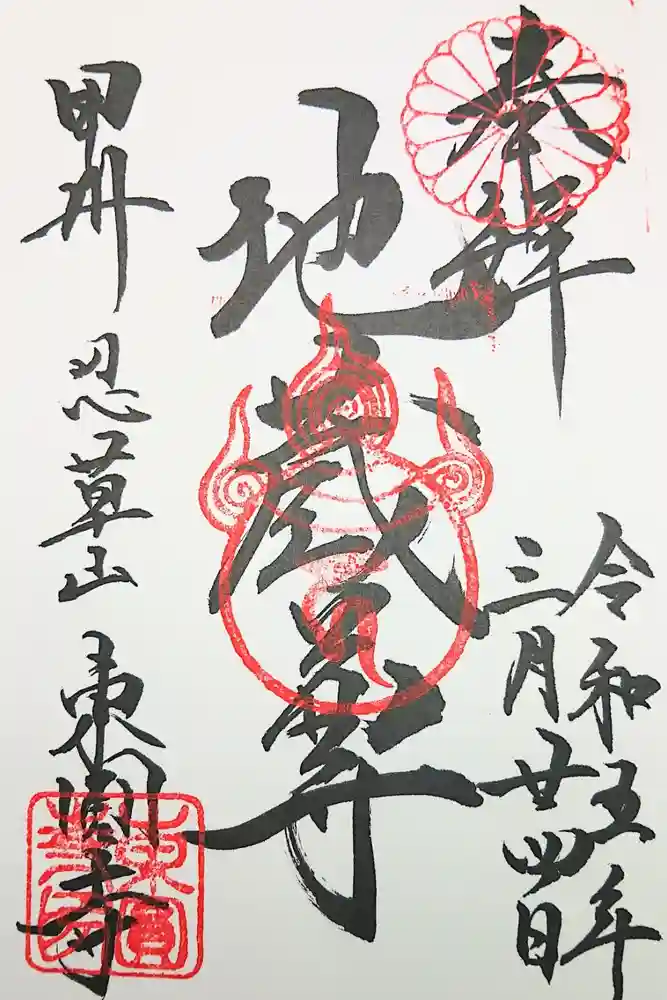 奉拝
令和五年
三月廿四日
地蔵尊
甲州 忍草山 東圓寺